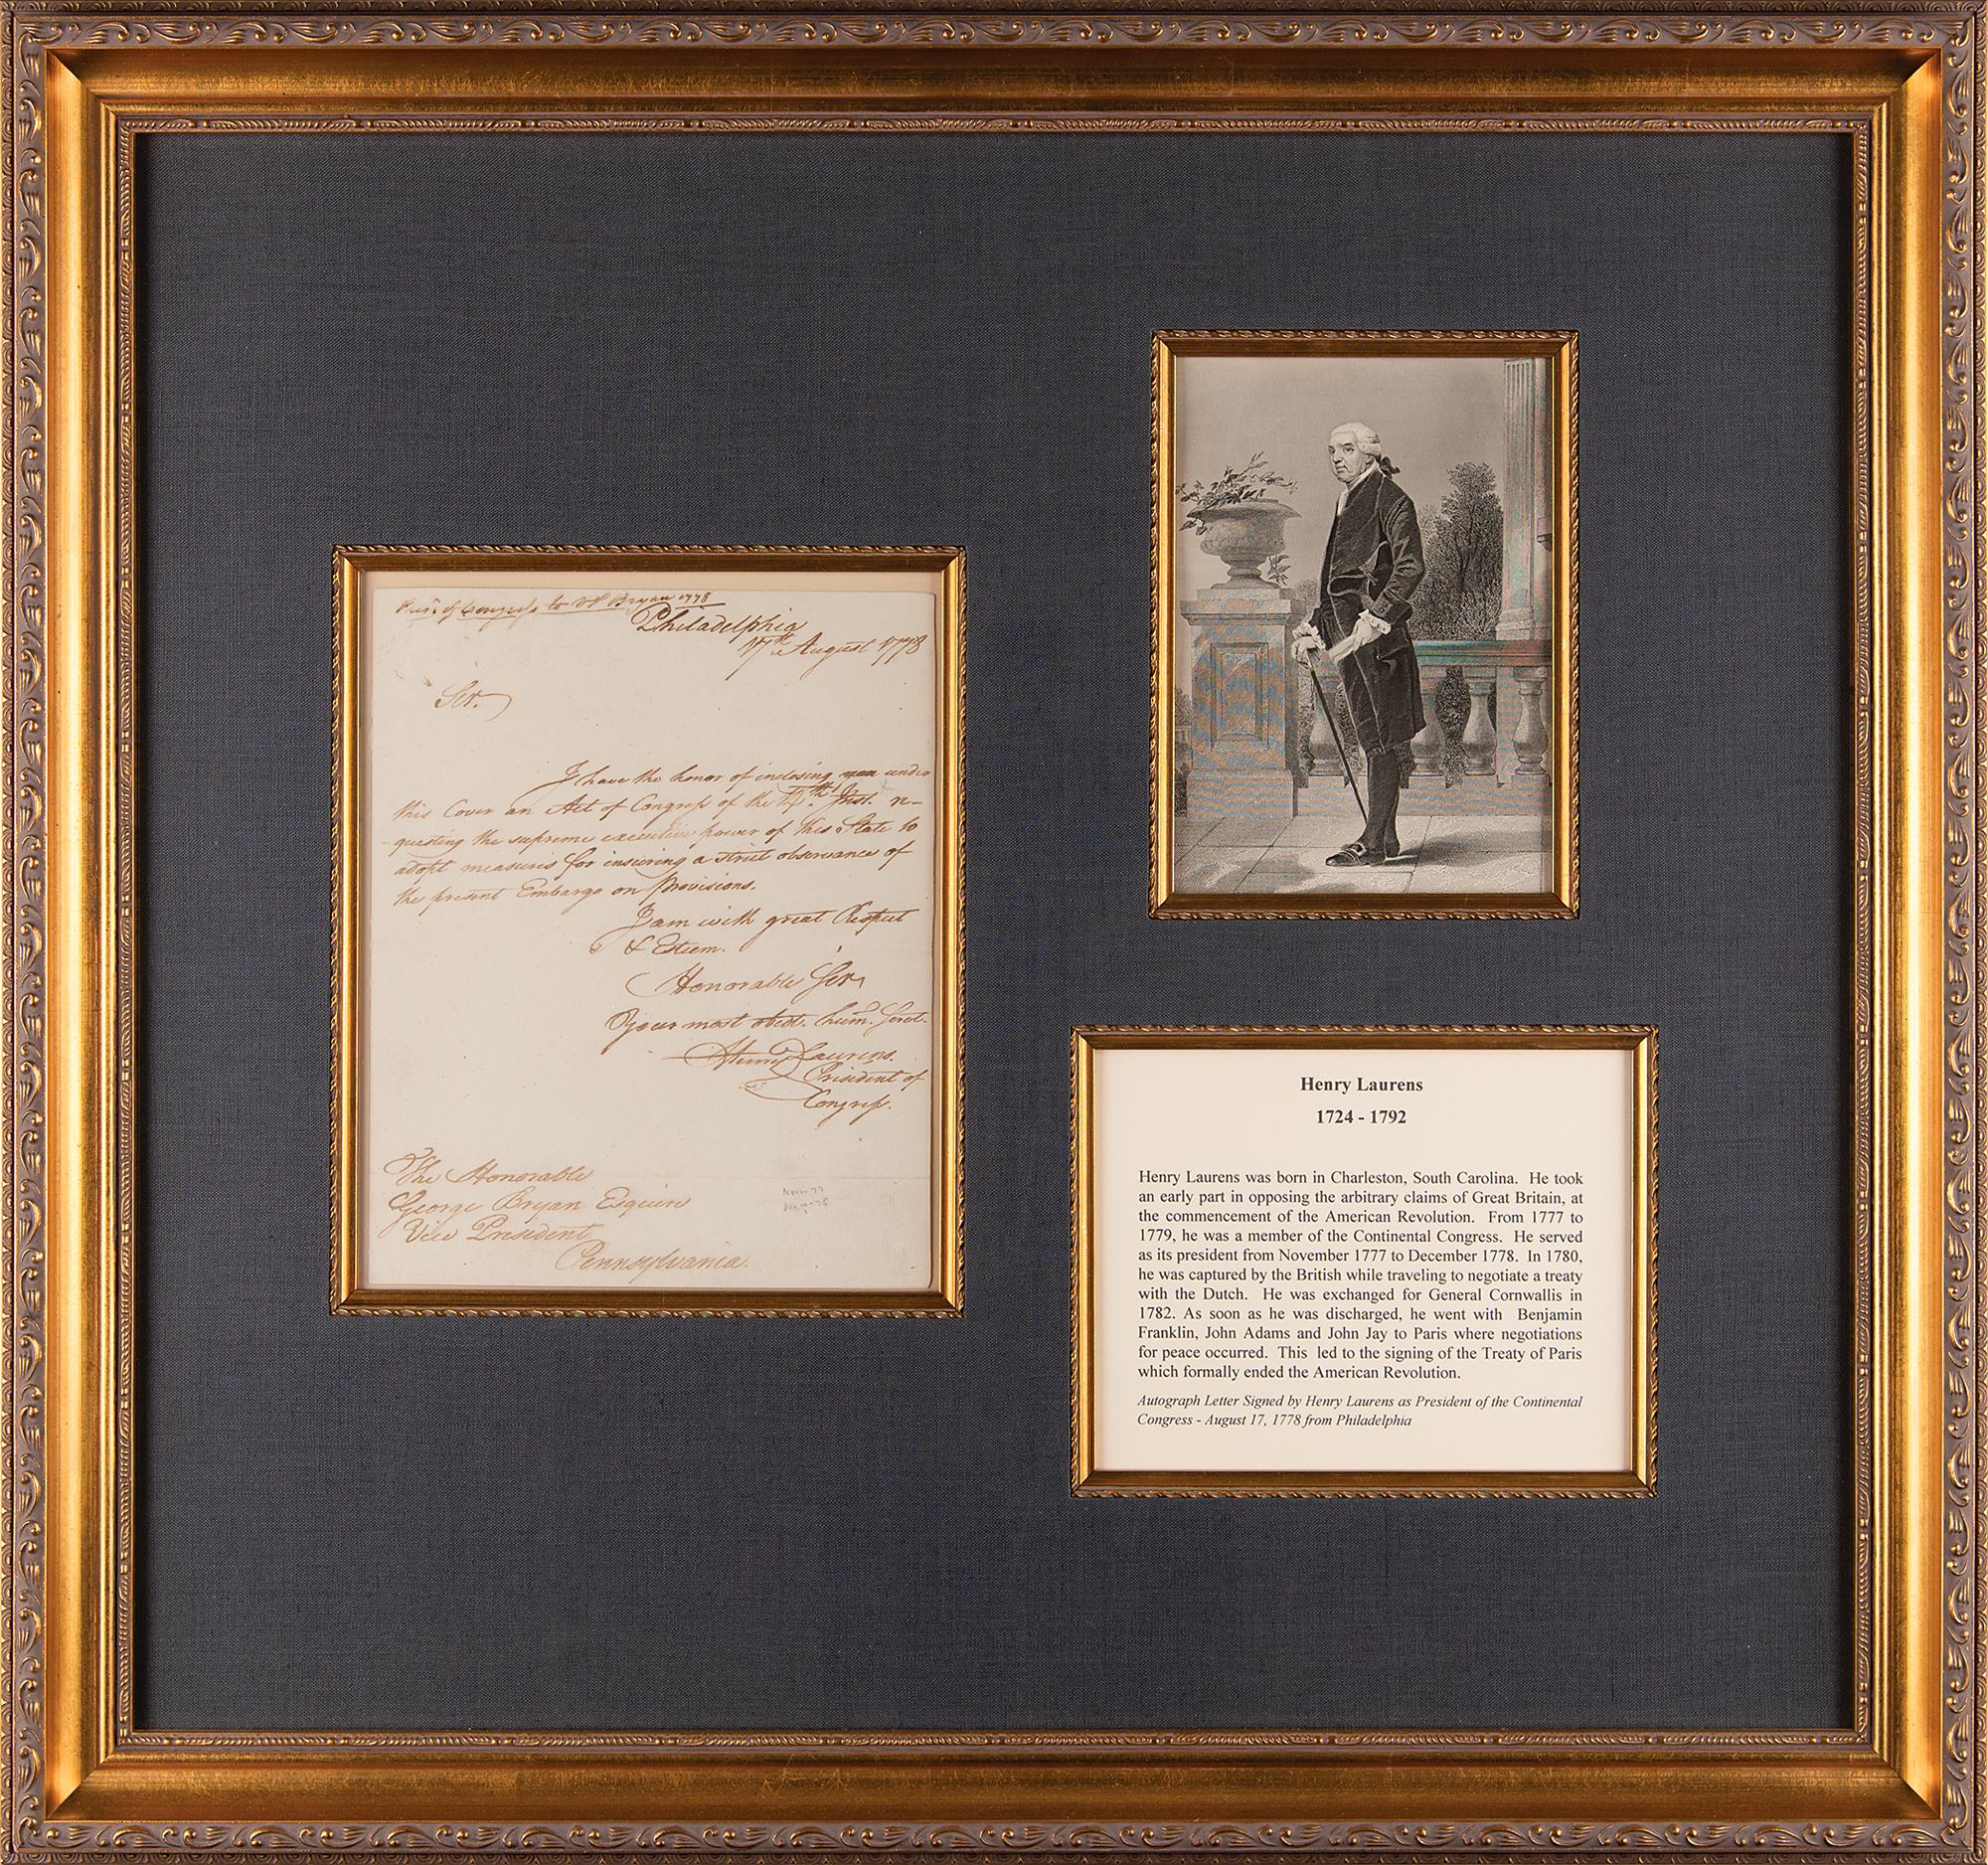 Presit. of Congress to VP Bryan 1778
Philadelphia
17th. August 1778
Sir.
I have the honor of inclosing under
this Cover an Act of Congress of the Inst. re-
questing the supreme executive power of this State to
adopt measures for insuring a strict observance of
the present Embargo on Provisions.
I am with great Respect
& Esteem.
Honorable Sir
Your most obedt. hum. Servt.
Henry Laurens.
President of
Congress.
The Honorable
George Bryan Esquire
Vice President
Pennsylvania.
Nov-77
Dec-78
Henry Laurens
1724 - 1792
Henry Laurens was born in Charleston, South Carolina. He took
an early part in opposing the arbitrary claims of Great Britain, at
the commencement of the American Revolution. From 1777 to
1779, he was a member of the Continental Congress. He served
as its president from November 1777 to December 1778. In 1780,
he was captured by the British while traveling to negotiate a treaty
with the Dutch. He was exchanged for General Cornwallis in
1782. As soon as he was discharged, he went with Benjamin
Franklin, John Adams and John Jay to Paris where negotiations
for peace occurred. This led to the signing of the Treaty of Paris
which formally ended the American Revolution.
Autograph Letter Signed by Henry Laurens as President of the Continental
Congress - August 17, 1778 from Philadelphia